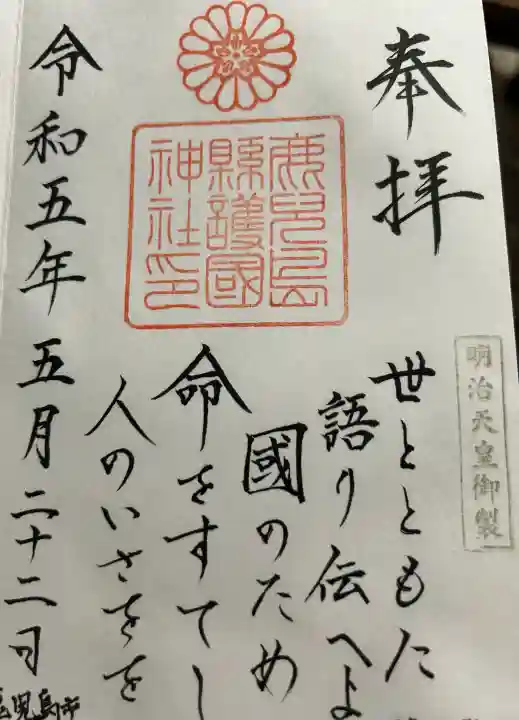 奉拝
明治天皇御製
世とともた
語り伝へよ
國のため
命をすてし
人のいさをを
鹿兒島
縣護國
神社印
令和五年五月二十二日
鹿児島市